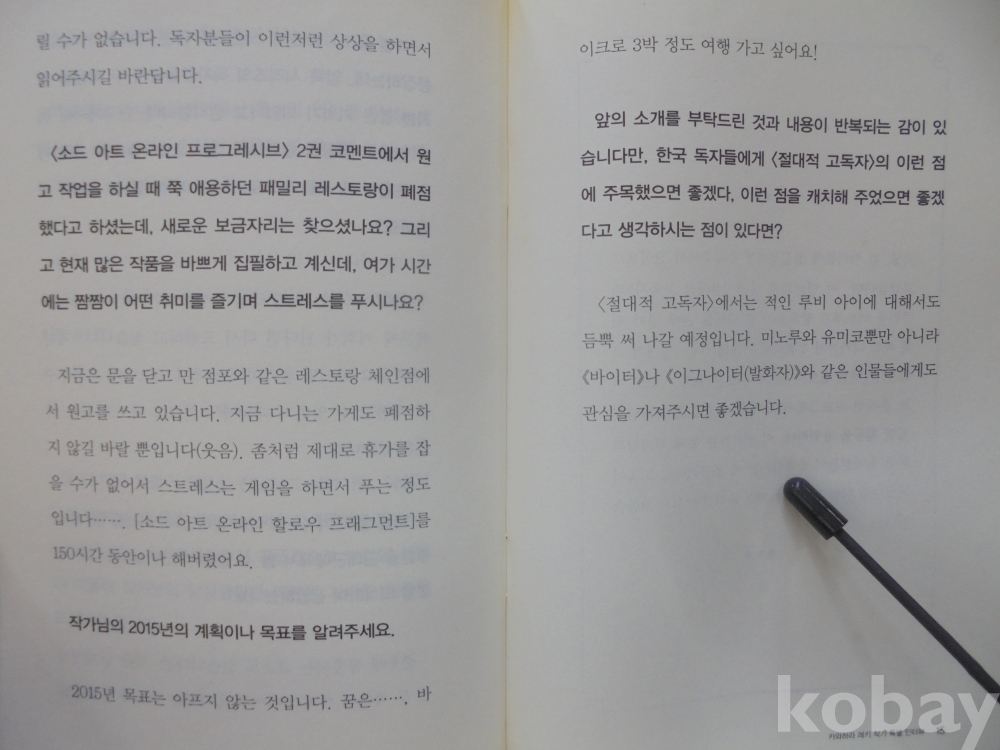 릴 수가 없습니다. 독자분들이 이런저런 상상을 하면서
읽어주시길 바란답니다.
〈소드 아트 온라인 프로그레시브〉 2권 코멘트에서 원
고 작업을 하실 때 쭉 애용하던 패밀리 레스토랑이 폐점
했다고 하셨는데, 새로운 보금자리는 찾으셨나요? 그리
고 현재 많은 작품을 바쁘게 집필하고 계신데, 여가 시간
에는 짬짬이 어떤 취미를 즐기며 스트레스를 푸시나요?
지금은 문을 닫고 만 점포와 같은 레스토랑 체인점에
서 원고를 쓰고 있습니다. 지금 다니는 가게도 폐점하
지 않길 바랄 뿐입니다(웃음). 좀처럼 제대로 휴가를 잡
을 수가 없어서 스트레스는 게임을 하면서 푸는 정도
입니다……. [소드 아트 온라인 할로우 프래그먼트]를
150시간 동안이나 해버렸어요.
작가님의 2015년의 계획이나 목표를 알려주세요.
2015년 목표는 아프지 않는 것입니다. 꿈은……, 바
이크로 3박 정도 여행 가고 싶어요!
앞의 소개를 부탁드린 것과 내용이 반복되는 감이 있
습니다만, 한국 독자들에게 〈절대적 고독자〉의 이런 점
에 주목했으면 좋겠다, 이런 점을 캐치해 주었으면 좋겠
다고 생각하시는 점이 있다면?
〈절대적 고독자〉에서는 적인 루비 아이에 대해서도
듬뿍 써 나갈 예정입니다. 미노루와 유미코뿐만 아니라
《바이터》나 《이그나이터(발화자)》와 같은 인물들에게도
관심을 가져주시면 좋겠습니다.
카와하라 레키 작가 특별 인터뷰
kobay